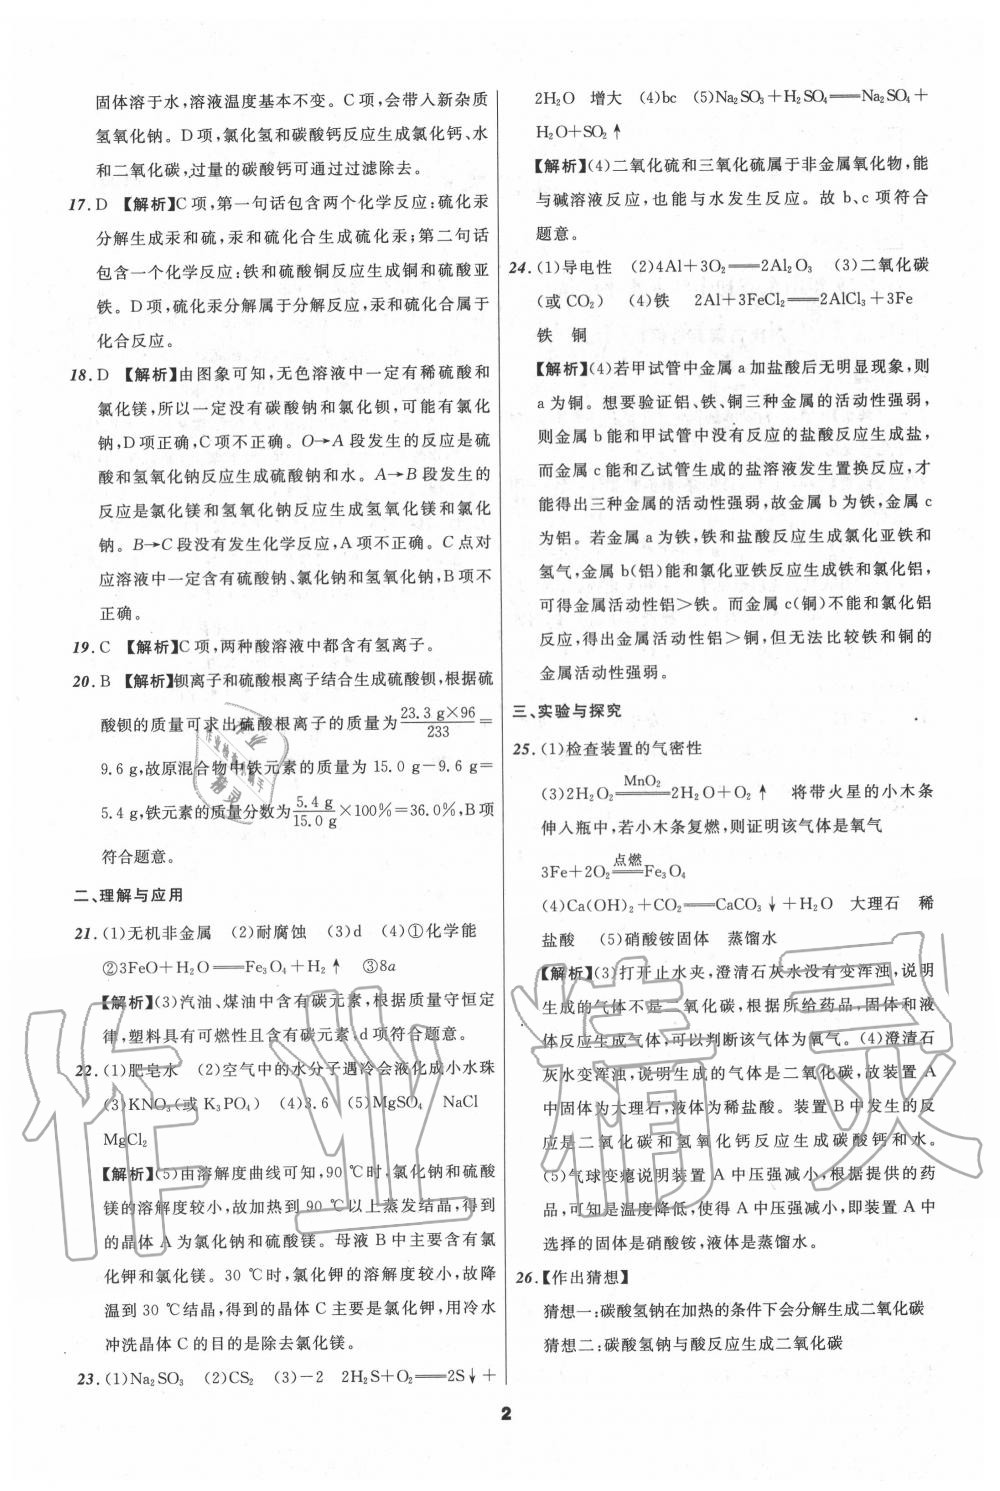 固体溶于水,溶液温度基本不变。C项,会带入新杂质
氢氧化钠。D项,氯化氢和碳酸钙反应生成氯化钙、水
和二氧化碳,过量的碳酸钙可通过过滤除去。
17. D 【解析】C项,第一句话包含两个化学反应:硫化汞
分解生成汞和硫,汞和硫化合生成硫化汞;第二句话
包含一个化学反应:铁和硫酸铜反应生成铜和硫酸亚
铁。D项,硫化汞分解属于分解反应,汞和硫化合属于
化合反应。
18. D 【解析】由图象可知,无色溶液中一定有稀硫酸和
氯化镁,所以一定没有碳酸钠和氯化钡,可能有氯化
钠,D项正确,C项不正确。O→A段发生的反应是硫
酸和氢氧化钠反应生成硫酸钠和水。A→B段发生的
反应是氯化镁和氢氧化钠反应生成氢氧化镁和氯化
钠。B→C段没有发生化学反应,A项不正确。C点对
应溶液中一定含有硫酸钠、氯化钠和氢氧化钠,B项不
正确。
19. C 【解析】C项,两种酸溶液中都含有氢离子。
20. B 【解析】钡离子和硫酸根离子结合生成硫酸钡,根据硫
酸钡的质量可求出硫酸根离子的质量为 23.3 g×96/233 =
9.6 g,故原混合物中铁元素的质量为15.0 g－9.6 g=
5.4 g,铁元素的质量分数为 5.4 g/15.0 g ×100%=36.0%,B项
符合题意。
二、理解与应用
21. (1)无机非金属 (2)耐腐蚀 (3)d (4)①化学能
②3FeO+H₂O══Fe₃O₄+H₂↑ ③8a
【解析】(3)汽油、煤油中含有碳元素,根据质量守恒定
律,塑料具有可燃性且含有碳元素,d项符合题意。
22. (1)肥皂水 (2)空气中的水分子遇冷会液化成小水珠
(3)KNO₃(或K₃PO₄) (4)3.6 (5)MgSO₄ NaCl
MgCl₂
【解析】(5)由溶解度曲线可知,90 ℃时,氯化钠和硫酸
镁的溶解度较小,故加热到90 ℃以上蒸发结晶,得到
的晶体A为氯化钠和硫酸镁。母液B中主要含有氯
化钾和氯化镁。30 ℃时,氯化钾的溶解度较小,故降
温到30 ℃结晶,得到的晶体C主要是氯化钾,用冷水
冲洗晶体C的目的是除去氯化镁。
23. (1)Na₂SO₃ (2)CS₂ (3)－2 2H₂S+O₂══2S↓+
2H₂O 增大 (4)bc (5)Na₂SO₃+H₂SO₄══Na₂SO₄+
H₂O+SO₂↑
【解析】(4)二氧化硫和三氧化硫属于非金属氧化物,能
与碱溶液反应,也能与水发生反应。故b、c项符合
题意。
24. (1)导电性 (2)4Al+3O₂══2Al₂O₃ (3)二氧化碳
(或CO₂) (4)铁 2Al+3FeCl₂══2AlCl₃+3Fe
铁 铜
【解析】(4)若甲试管中金属a加盐酸后无明显现象,则
a为铜。想要验证铝、铁、铜三种金属的活动性强弱,
则金属b能和甲试管中没有反应的盐酸反应生成盐,
而金属c能和乙试管生成的盐溶液发生置换反应,才
能得出三种金属的活动性强弱,故金属b为铁,金属c
为铝。若金属a为铁,铁和盐酸反应生成氯化亚铁和
氢气,金属b(铝)能和氯化亚铁反应生成铁和氯化铝,
可得金属活动性铝>铁。而金属c(铜)不能和氯化铝
反应,得出金属活动性铝>铜,但无法比较铁和铜的
金属活动性强弱。
三、实验与探究
25. (1)检查装置的气密性
(3)2H₂O₂ ══MnO₂══ 2H₂O+O₂↑ 将带火星的小木条
伸入瓶中,若小木条复燃,则证明该气体是氧气
3Fe+2O₂ ══点燃══ Fe₃O₄
(4)Ca(OH)₂+CO₂══CaCO₃↓+H₂O 大理石 稀
盐酸 (5)硝酸铵固体 蒸馏水
【解析】(3)打开止水夹,澄清石灰水没有变浑浊,说明
生成的气体不是二氧化碳,根据所给药品,固体和液
体反应生成气体,可以判断该气体为氧气。(4)澄清石
灰水变浑浊,说明生成的气体是二氧化碳,故装置A
中固体为大理石,液体为稀盐酸。装置B中发生的反
应是二氧化碳和氢氧化钙反应生成碳酸钙和水。
(5)气球变瘪说明装置A中压强减小,根据提供的药
品,可知是温度降低,使得A中压强减小,即装置A中
选择的固体是硝酸铵,液体是蒸馏水。
26. 【作出猜想】
猜想一:碳酸氢钠在加热的条件下会分解生成二氧化碳
猜想二:碳酸氢钠与酸反应生成二氧化碳
2
作业精灵